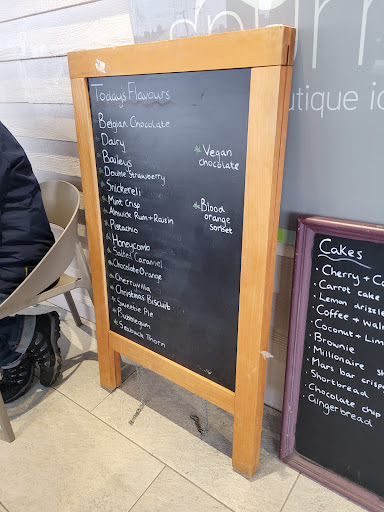 Todays Flavours
Belgian Chocolate
Dairy
Baileys
Double Strawberry
Snickereli
Mint Crisp
Alnwick Rum + Raisin
Pistachio
Honeycomb
Salted Caramel
Chocolate Orange
Cherryvilla
Christmas Biscuit
Sweetie Pie
Seabuck Thorn
* Vegan
chocolate
* Blood
orange
sorbet
utique ic
Cakes
· Cherry + Co
· Carrot cake
· Lemon drizzle
· Coffee + Waln
· Coconut + Lim
· Brownie
· Millionaire sh
· Mars bar crisp
· Shortbread
· Chocolate chip
· Gingerbread